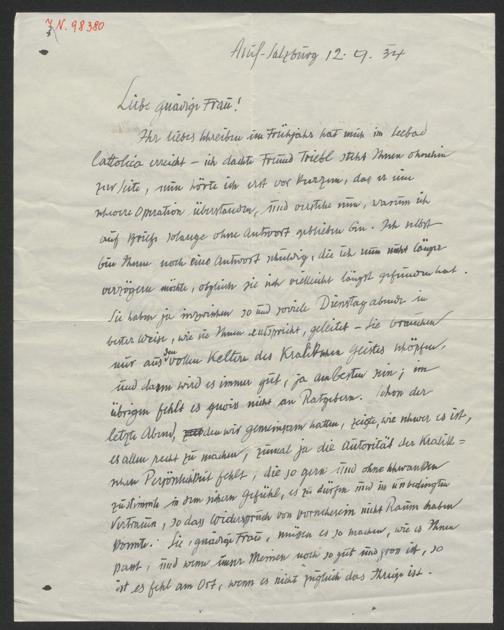 I. N. 98380
Aus-Salzburg 12. 9. 34
Liebe gnädige Frau!
Ihr liebes Schreiben im Frühjahr hat mich im Seebad
Cattolica erreicht – ich dachte Freund Triebl steht Ihnen ohnehin
zur Seite, nun hörte ich erst vor Kurzem, dass er eine
schwere Operation überstanden, und verstehe nun, warum ich
auf Briefe solange ohne Antwort geblieben bin. Ich selbst
bin Ihnen noch eine Antwort schuldig, die ich nun nicht länger
verzögern möchte, obgleich Sie sie vielleicht längst gefunden hat.
Sie haben ja inzwischen so und soviele Dienstagabende in
bester Weise, wie sie Ihnen entspricht, geleitet – Sie brauchen
nur aus den vollen Keltern des Kralikschen Geistes schöpfen,
und dann wird es immer gut, ja am besten sein; im
übrigen fehlt es gewiss nicht an Ratgebern. Schon der
letzte Abend, den wir gemeinsam hatten, zeigte, wie schwer es ist,
es allen recht zu machen, zumal ja die Autorität der Kralik=
schen Persönlichkeit fehlt, die so gern und ohne Schwanken
zustimmte in dem sichern Gefühl, es zu dürfen und in unbedingtem
Vertrauen, so dass Widerspruch von vorneherein nicht Raum haben
konnte. Sie, gnädige Frau, müssen es so machen, wie es Ihnen
passt, und wenn unser Meinen noch so gut und fromm ist, so
ist es fehl am Ort, wenn es nicht zugleich das Ihrige ist.